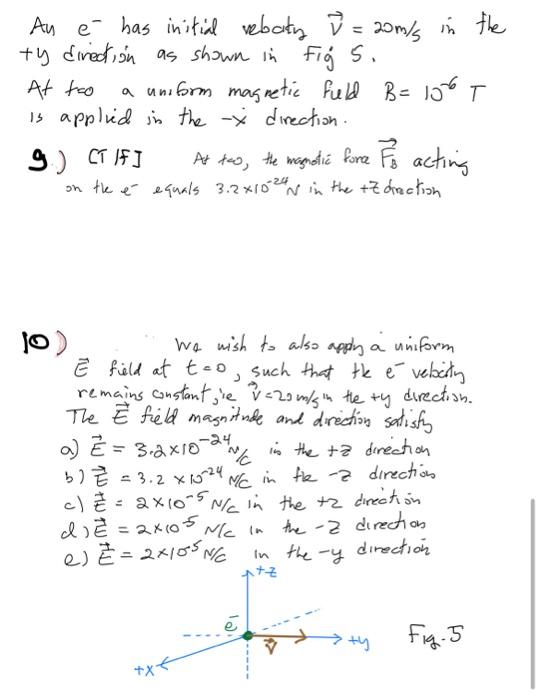 An e⁻ has initial velocity V⃗ = 20m/s in the
+y direction as shown in Fig 5.
At t=0 a uniform magnetic field B = 10⁻⁶ T
is applied in the -x direction.
9.) [T/F] At t=0, the magnetic force F⃗B acting
on the e⁻ equals 3.2×10⁻²⁴N in the +Z direction
10) We wish to also apply a uniform
E⃗ field at t=0, such that the e⁻ velocity
remains constant, ie V⃗=20m/s in the +y direction.
The E⃗ field magnitude and direction satisfy
a) E⃗ = 3.2×10⁻²⁴ N/C in the +z direction
b) E⃗ = 3.2 × 10⁻²⁴ N/C in the -z direction
c) E⃗ = 2×10⁻⁵ N/C in the +z direction
d) E⃗ = 2×10⁻⁵ N/C in the -z direction
e) E⃗ = 2×10⁻⁵ N/C in the -y direction
+Z
e⁻
V⃗
+y
Fig. 5
+X